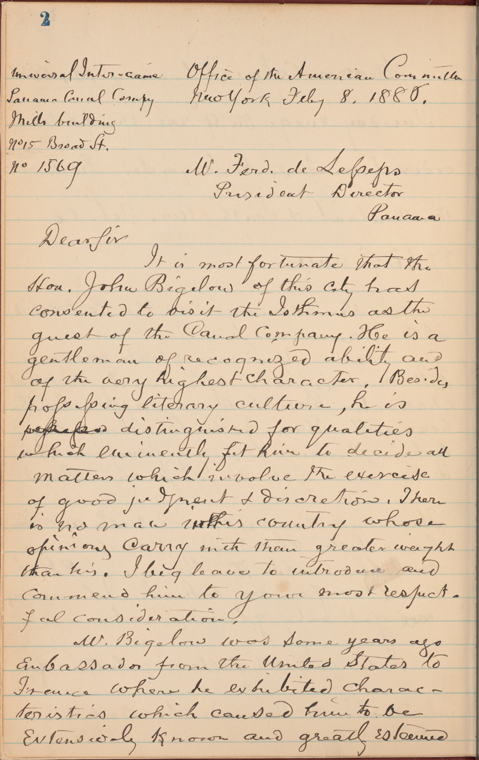 2
Universal Inter-oceanic
Panama Canal Compy
Mills building
No 15 Broad St.
No 1569
Office of the American Committee
New York Feby 8. 1886.
M. Ferd. de Lesseps
President Director
Panama
Dear Sir
It is most fortunate that the
Hon. John Bigelow of this city has
consented to visit the Isthmus as the
guest of the Canal Company. He is a
gentleman of recognized ability and
of the very highest character. Besides
possessing literary culture, he is
distinguished for qualities
which eminently fit him to decide all
matters which involve the exercise
of good judgment & discretion. There
is no man in this country whose
opinions carry with them greater weight
than his. I beg leave to introduce and
commend him to your most respect-
ful consideration.
Mr. Bigelow was some years ago
Embassador from the United States to
France where he exhibited charac-
teristics which caused him to be
extensively known and greatly esteemed